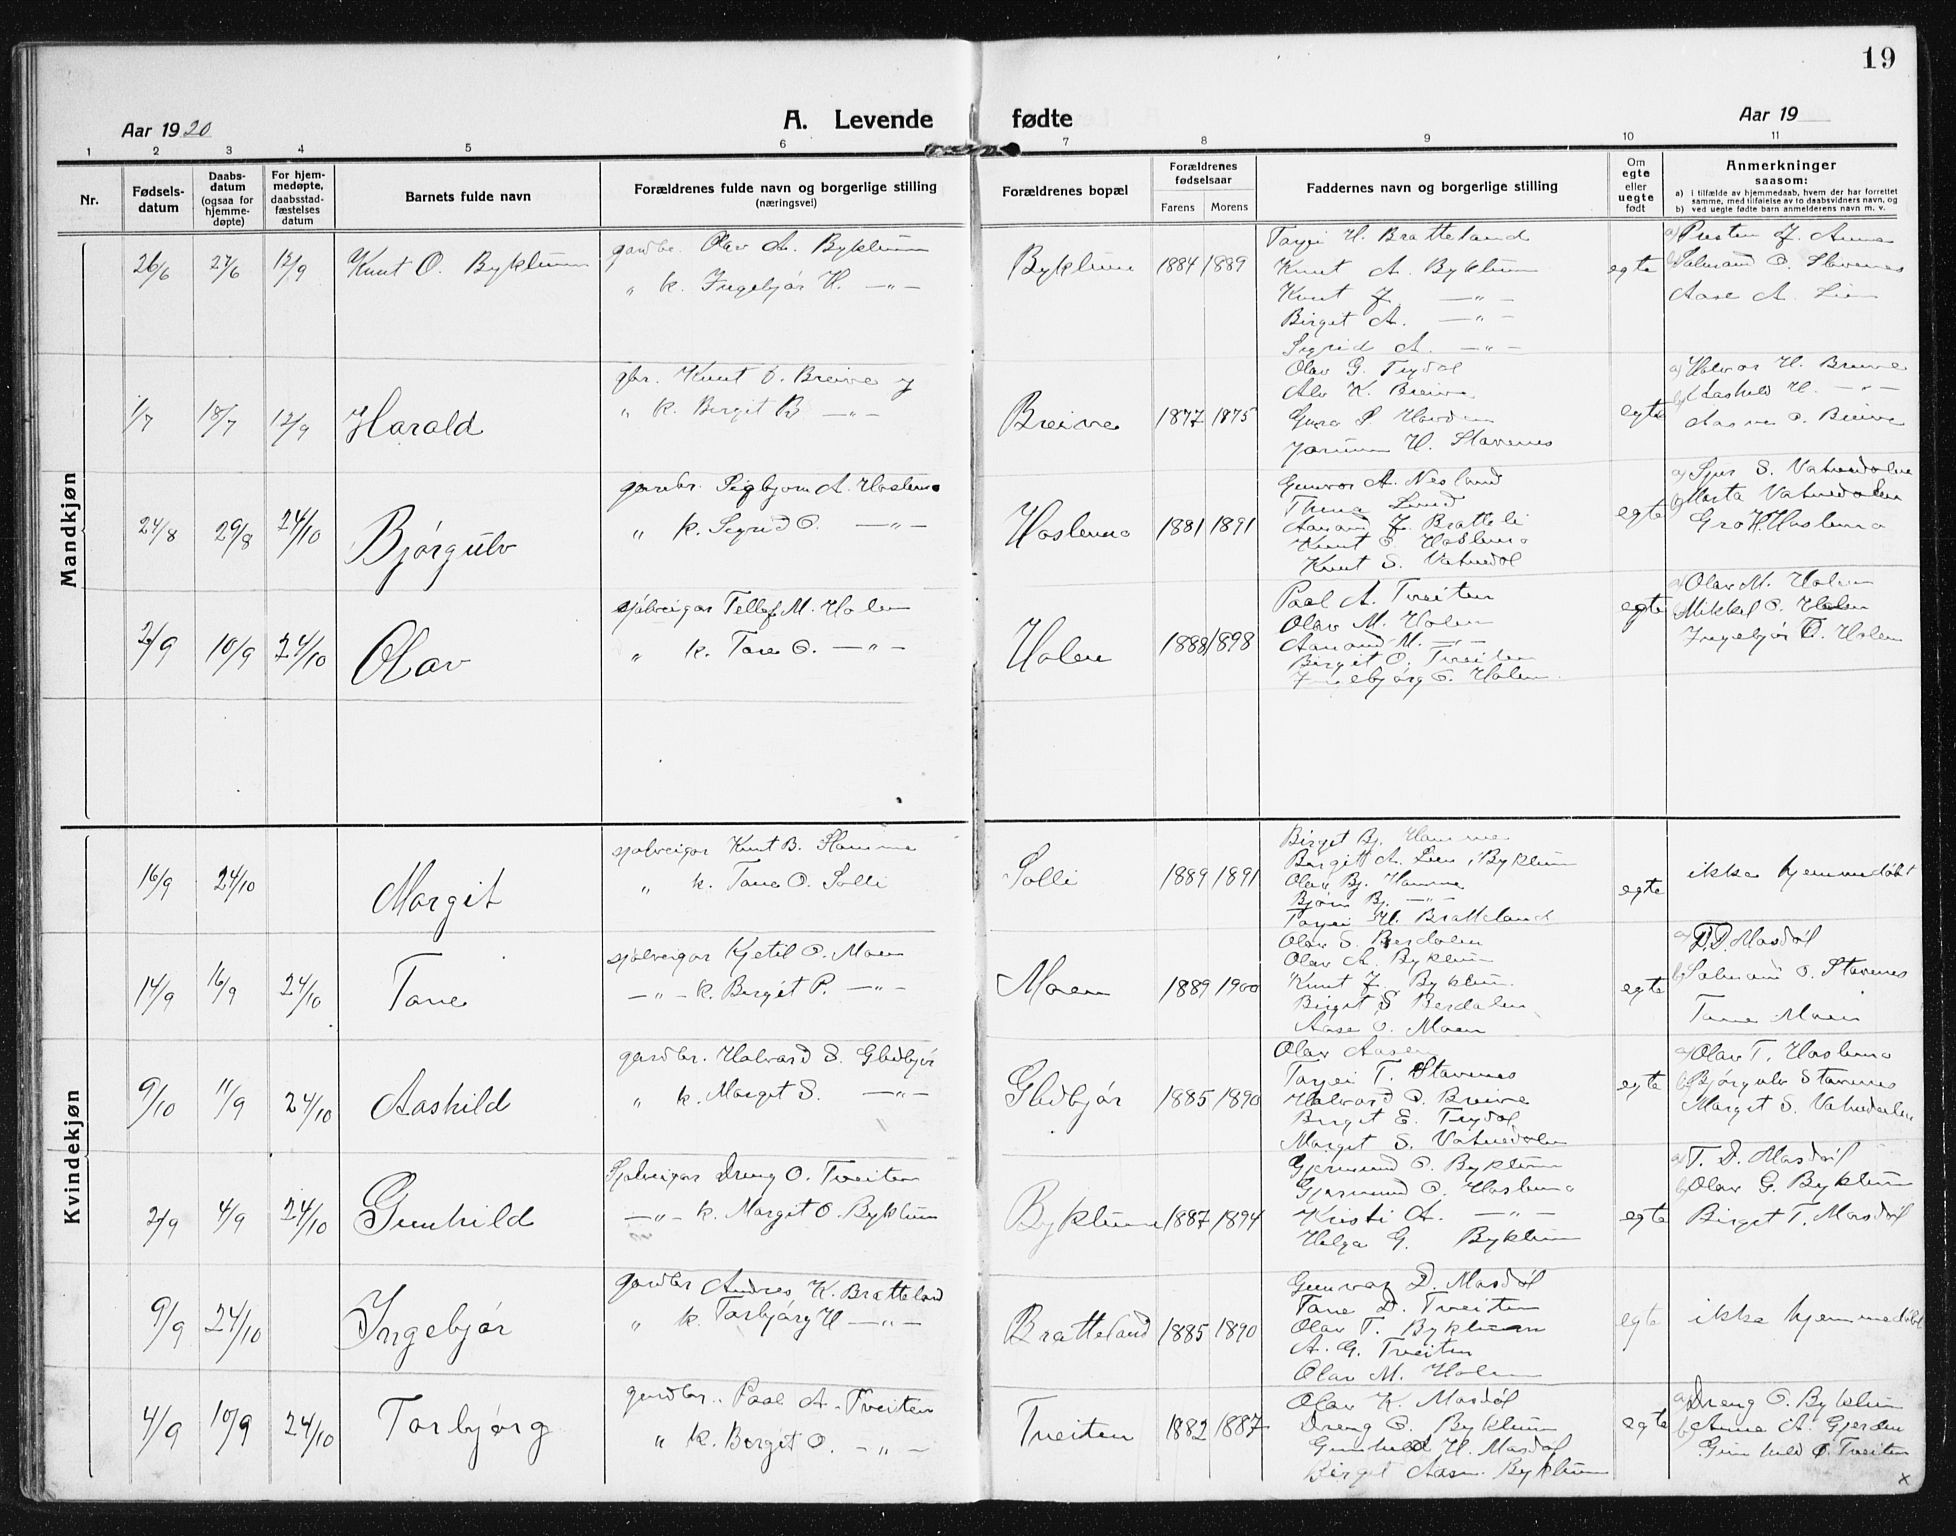 19
Aar 1920
A. Levende fødte
Aar 19
1 2 3 4 5 6 7 8 9 10 11
Nr.
Fødsels-
datum
Daabs-
datum
(ogsaa for
hjemme-
døpte)
For hjem-
medøpte,
daabsstad-
fæstelses
datum
Barnets fulde navn
Forældrenes fulde navn og borgerlige stilling
(næringsvei)
Forældrenes bopæl
Forældrenes
fødselsaar
Farens Morens
Faddernes navn og borgerlige stilling
Om
egte
eller
uegte
født
Anmerkninger
saasom:
a) i tilfælde av hjemmedaab, hvem der har forrettet
samme, med tilføielse av to daabsvidners navn, og
b) ved uegte fødte barn anmelderens navn m. v.
Mandkjøn
26/6 27/6 12/9 Knut O. Byklum
gardbr. Olav A. Byklum
" k. Ingebjør H. —"—
Byklum 1884 1889
Tarjei H. Bratteland
Knut A. Byklum
Knut J. —"—
Birgit A. —"—
Sigrid A. —"—
egte
a) Presten J.
b) Salmund O. Stavenes
Aase A. Lien
1/7 18/7 12/9 Harald
gbr. Knut O. Breive
" k. Birgit B. —"—
Breive 1877 1875
Olav G. Trydal
Alv K. Breive
Gyro
H. Stavenes
egte
a) Halvor H. Breive
b) Aashild H. —"—
O. Breive
24/8 29/8 24/10 Bjørgulv
gardbr. Sigbjørn A. Hoslemo
" k. Sigrid O. —"—
Hoslemo 1881 1891
Gunvor A. Nesland
Thina Lund
Aanund J. Bratteli
Knut O. Hoslemo
Knut S. Vatnedal
egte
a) Sjur S. Vatnedalen
b) Marta Vatnedalen
Gro H. Hoslemo
2/9 10/9 24/10 Olav
sjølveigar Tellef M. Holen
" k. Tone O. —"—
Holen 1888 1898
Paal A. Tveiten
Olav M. Holen
Aanund M. —"—
Birgit O. Tveiten
Ingebjørg O. Holen
egte
a) Olav M. Holen
b) Mikkel O. Holen
Ingebjør O. Holen
Kvindekjøn
16/9 24/10 Margit
sjølveigar Knut B. Hamme
" k. Tone O. Solli
Solli 1889 1891
Birgit Bj. Hamme
Birgit A. Lien, Byklum
Olav Bj. Hamme
Bjørn Bj. —"—
Tarjei H. Bratteland
egte
ikke hjemmedøbt
14/9 16/9 24/10 Tone
sjølveigar Kjetil O. Moen
—"— k. Birgit P. —"—
Moen 1889 1900
Olav S. Berdalen
Olav A. Byklum
Knut J. Byklum
Birgit S. Berdalen
Aase O. Moen
egte
a) D. Mosdøl
b) Salmund O. Stavenes
Tone Moen
9/10 11/9 24/10 Aashild
gardbr. Halvard S. Gldbjør
" k. Margit S. —"—
Gldbjør 1885 1890
Olav Aasen
Tarjei T. Stavenes
Halvard O. Breive
Birgit E. Trydal
Margit S. Vatnedalen
egte
a) Olav T. Hoslemo
b) Bjørgulv Stavenes
Margit S. Vatnedalen
2/9 4/9 24/10 Gunhild
Sjølveigar Dreng O. Tveiten
—"— k. Margit O. Byklum
Byklum 1887 1894
Gjermund O. Byklum
Gjermund O. Hoslemo
Kristi A. —"—
Helga G. Byklum
egte
a) T. D. Mosdøl
b) Olav G. Byklum
Birgit T. Mosdøl
9/9 24/10 Ingebjør
gardbr. Andres K. Bratteland
" k. Torbjørg H —"—
Bratteland 1885 1890
Gunvor D. Mosdøl
Tone D. Tveiten
Olav T. Byklum
A. G. Tveiten
Olav M. Holen
egte
ikke hjemmedøbt
4/9 10/9 24/10 Torbjørg
gardbr. Paal A. Tveiten
" k. Birgit O. —"—
Tveiten 1882 1887
Olav K. Mosdøl
Dreng O. Byklum
Gunhild H. Mosdøl
Birgit Aasn. Byklum
egte
a) Dreng O. Byklum
b) Anne A. Gjerden
Gunhild O. Tveiten
x